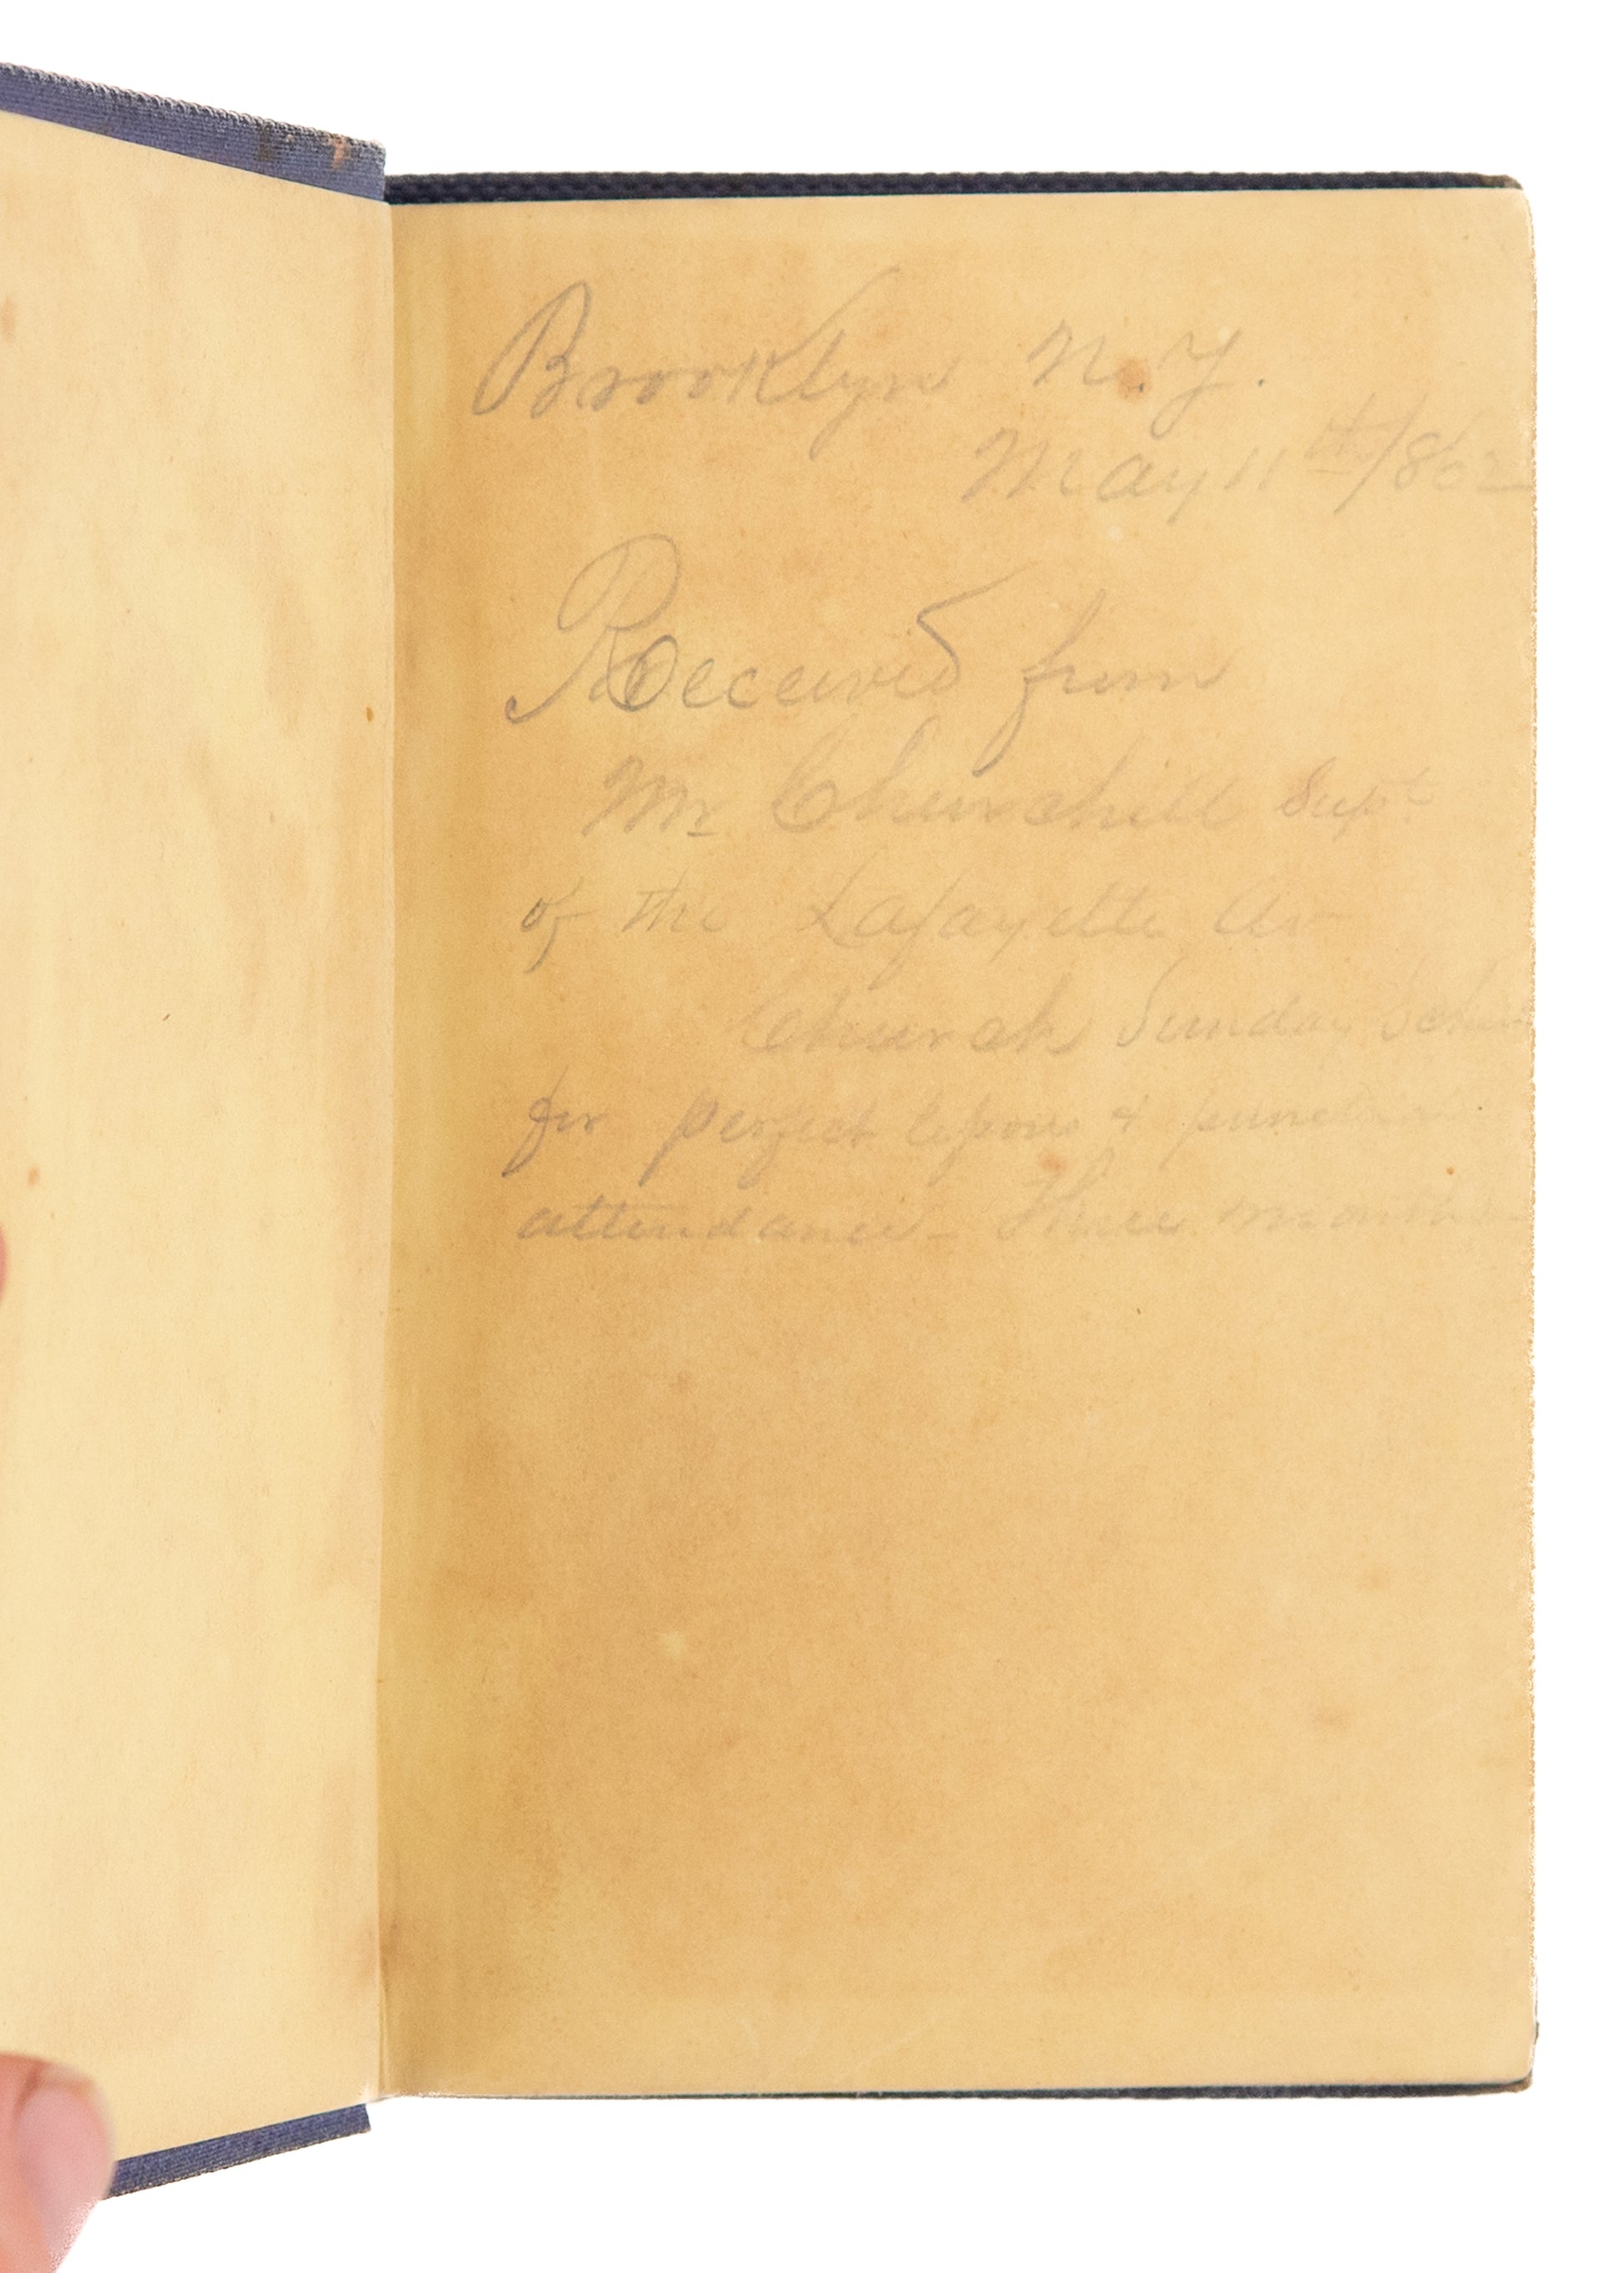 Brooklyn N.Y.
May 11th/862
Received from
Mr Churchill Supt
of the Lafayette Av
Church Sunday School
for perfect lessons & punctual
attendance - Three months